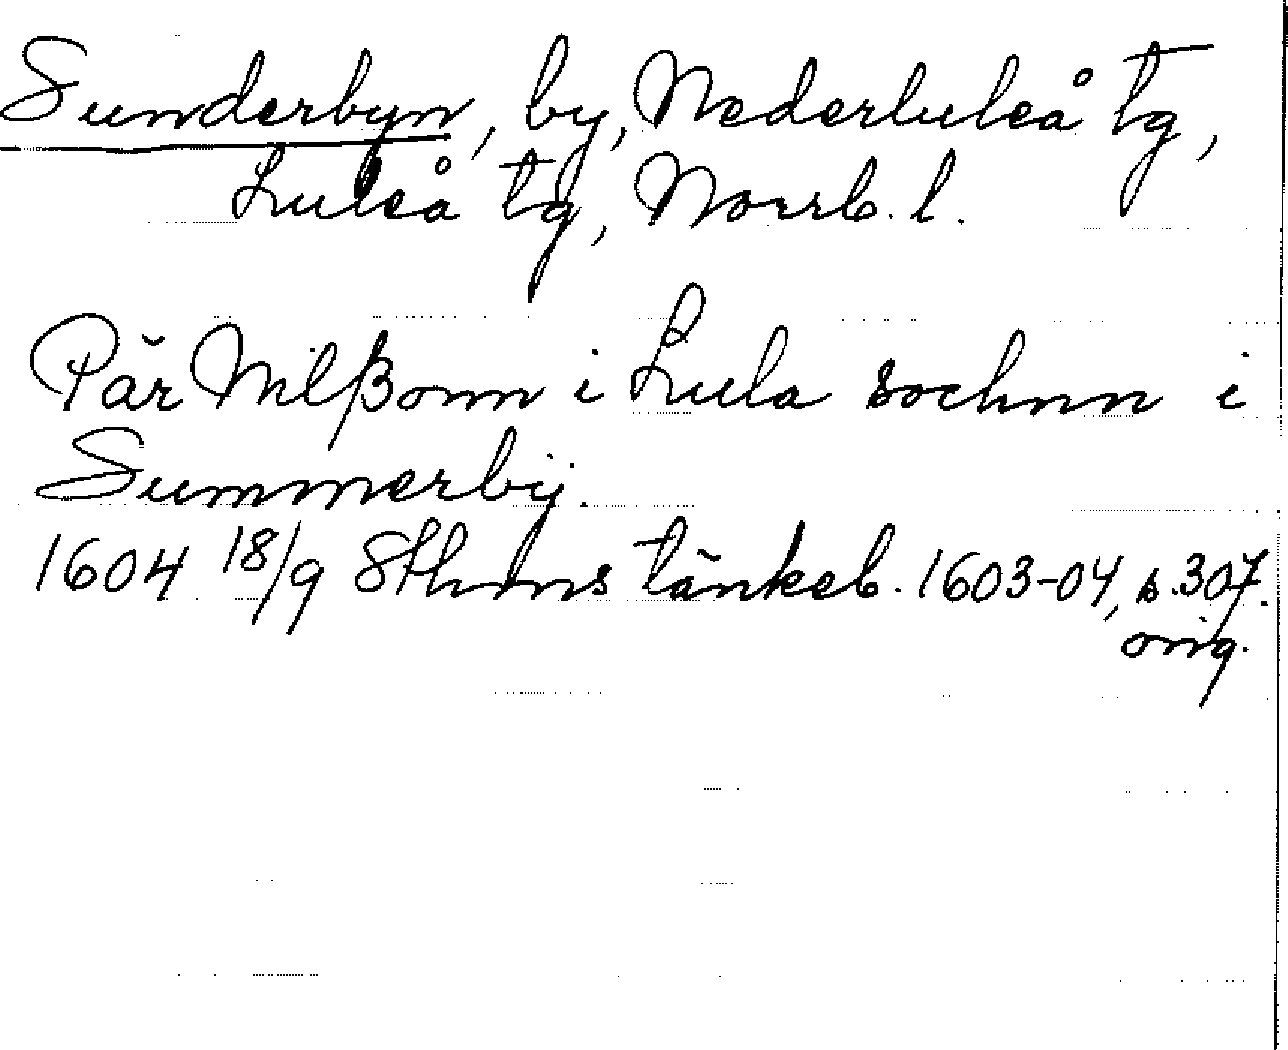 Sunderbyn, by, Nederluleå tg,
Luleå tg, Norrb. l.
Pär Nilßonn i Lula sochnn i
Summerbÿ.
1604 18/9 Sthms tänkeb. 1603-04, s. 307.
orig.